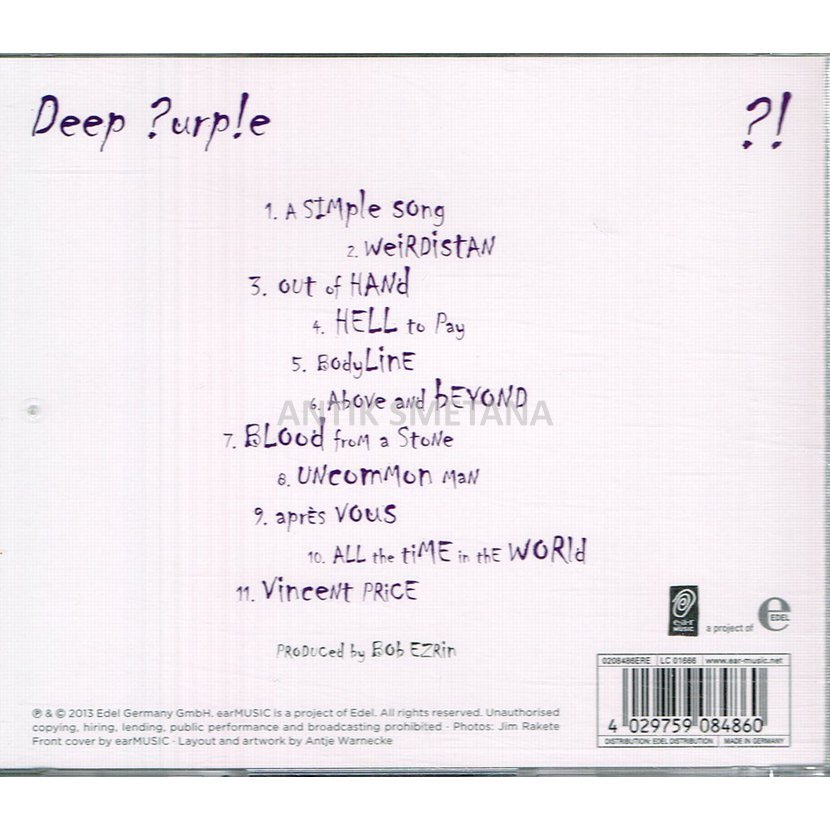 Deep ?urp!e
?!
1. A SIMple song
2. WeiRDistAN
3. out of HANd
4. HELL to Pay
5. BodyLinE
6. Above and bEYOND
ANTIK SMETANA
7. BLood froM a StoNe
8. UNcomMon MaN
9. aprÈs VOUS
10. ALL the tiME in thE WORld
11. VinceNt PRiCE
PRoDuced by BOb EZRin
e·a·r
MUSIC
a project of
e
EDEL
0208486ERE LC 01666 www.ear-music.net
4 029759 084860
DISTRIBUTION: EDEL DISTRIBUTION MADE IN GERMANY
℗ & © 2013 Edel Germany GmbH. earMUSIC is a project of Edel. All rights reserved. Unauthorised
copying, hiring, lending, public performance and broadcasting prohibited · Photos: Jim Rakete
Front cover by earMUSIC · Layout and artwork by Antje Warnecke